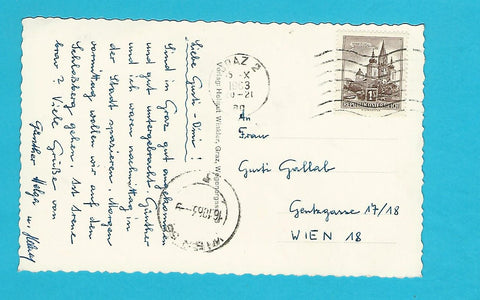 Liebe Gusti-Omi!
Sind in Graz gut angekommen
und gut untergebracht. Günther
und ich waren nachmittag in
der Stadt spazieren. Morgen
vormittag wollen wir auf den
Schloßberg gehen. Ist
brav? Viele Grüße von
Günther Helga u.
Verlag Helmut Winkler, Graz,
GRAZ 2
An
Frau
Gusti Gallab
Gentzgasse 17/18
WIEN 18
WIEN